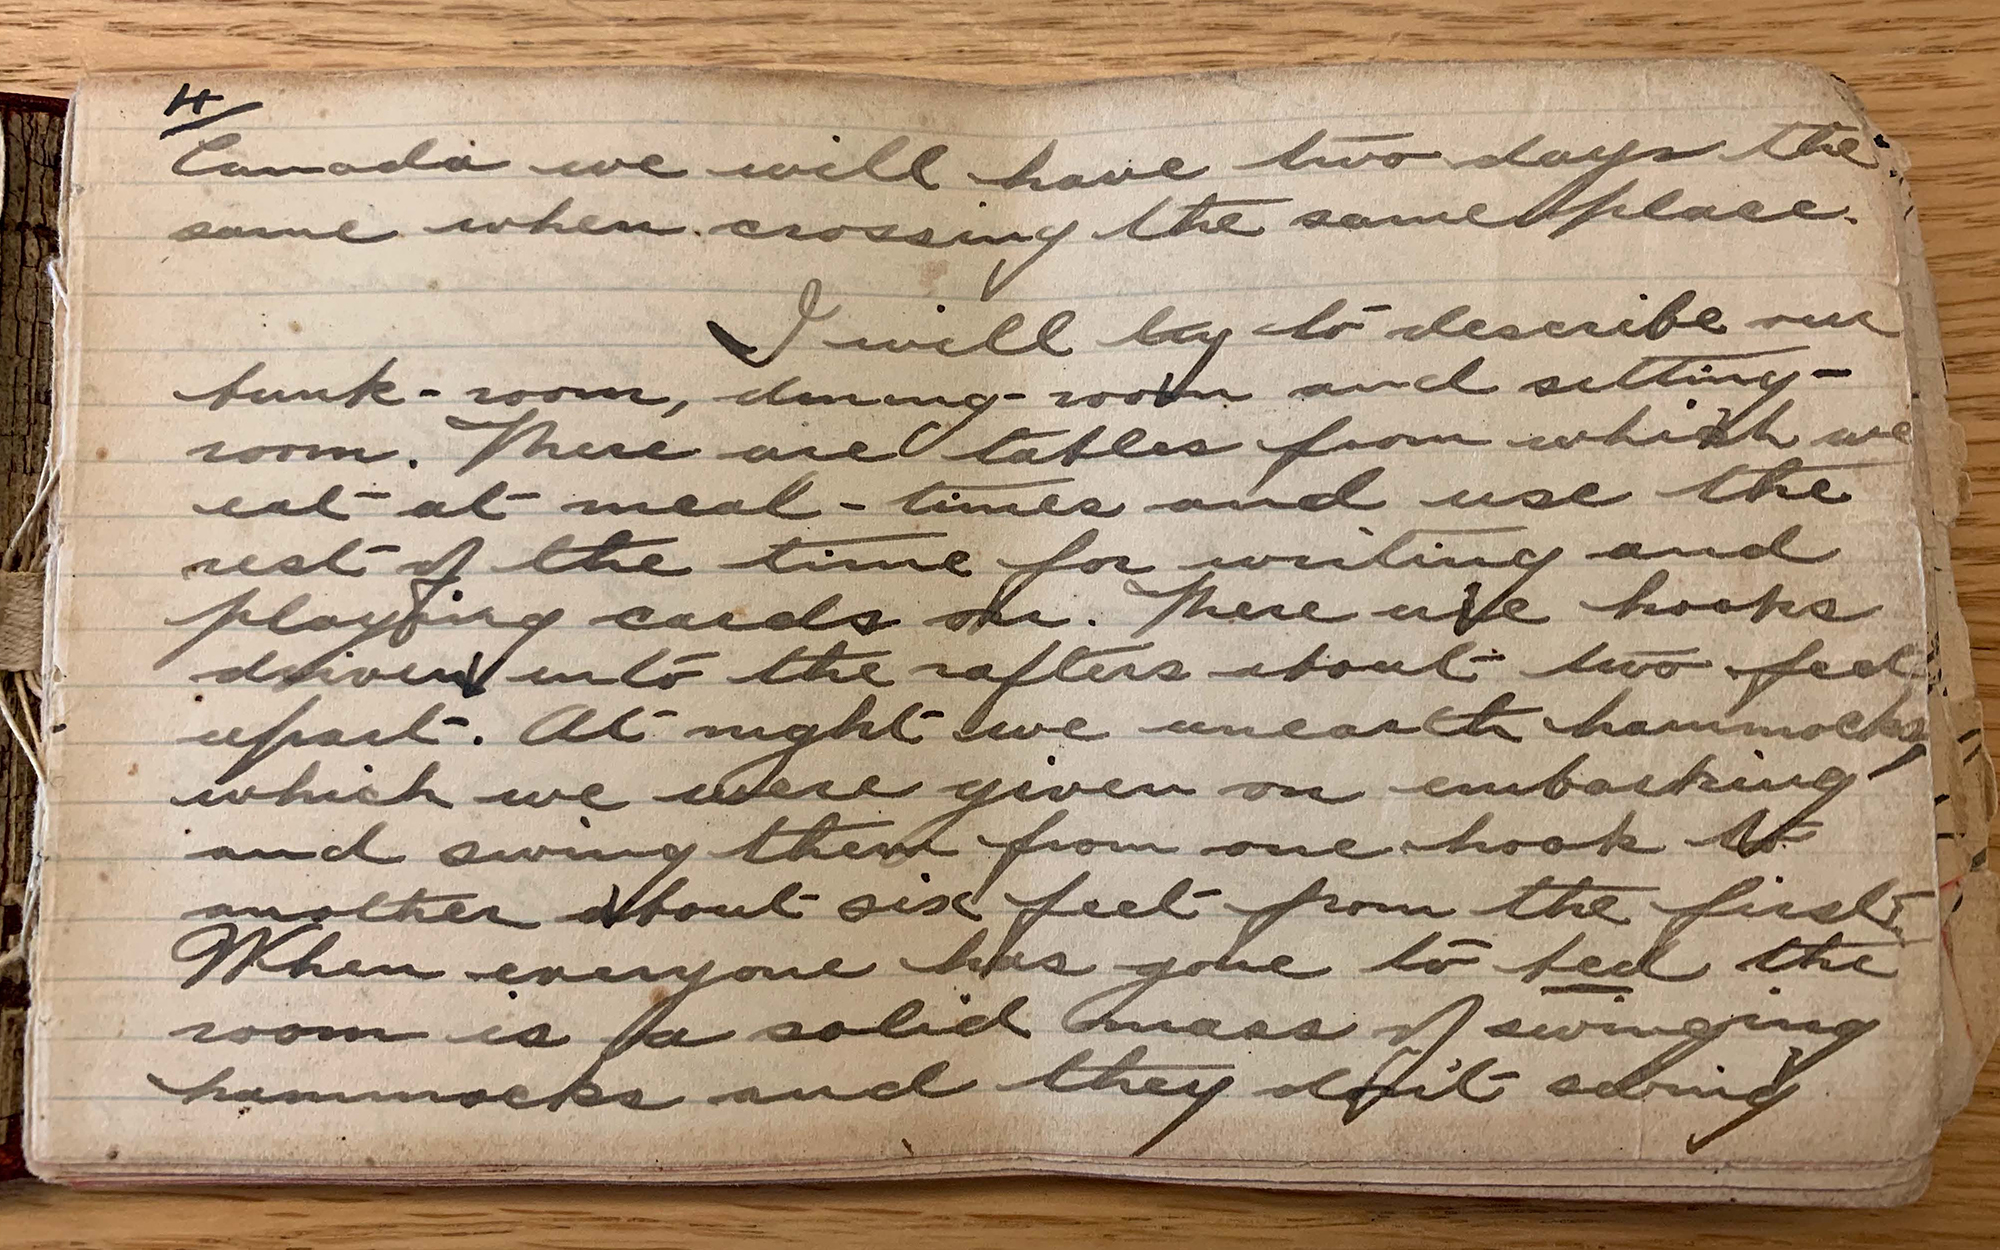 4
Canada we will have two days the
same when crossing the same place.
I will try to describe our
bunk-room, dining-room and sitting-
room. There are tables from which we
eat at meal-times and use the
rest of the time for writing and
playing cards on. There are hooks
driven into the rafters about two feet
apart. At night we unearth hammocks,
which we were given on embarking
and swing them from one hook to
another about six feet from the first.
When everyone has gone to bed the
room is a solid mass of swinging
hammocks and they don't swing